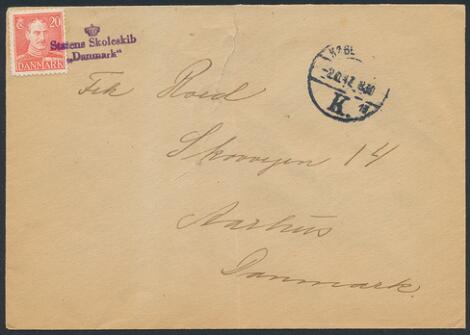 20
DANMARK
Statens Skoleskib
"Danmark"
KØBE
K.
Frk Roed
Skovvejen 14
Aarhus
Danmark.